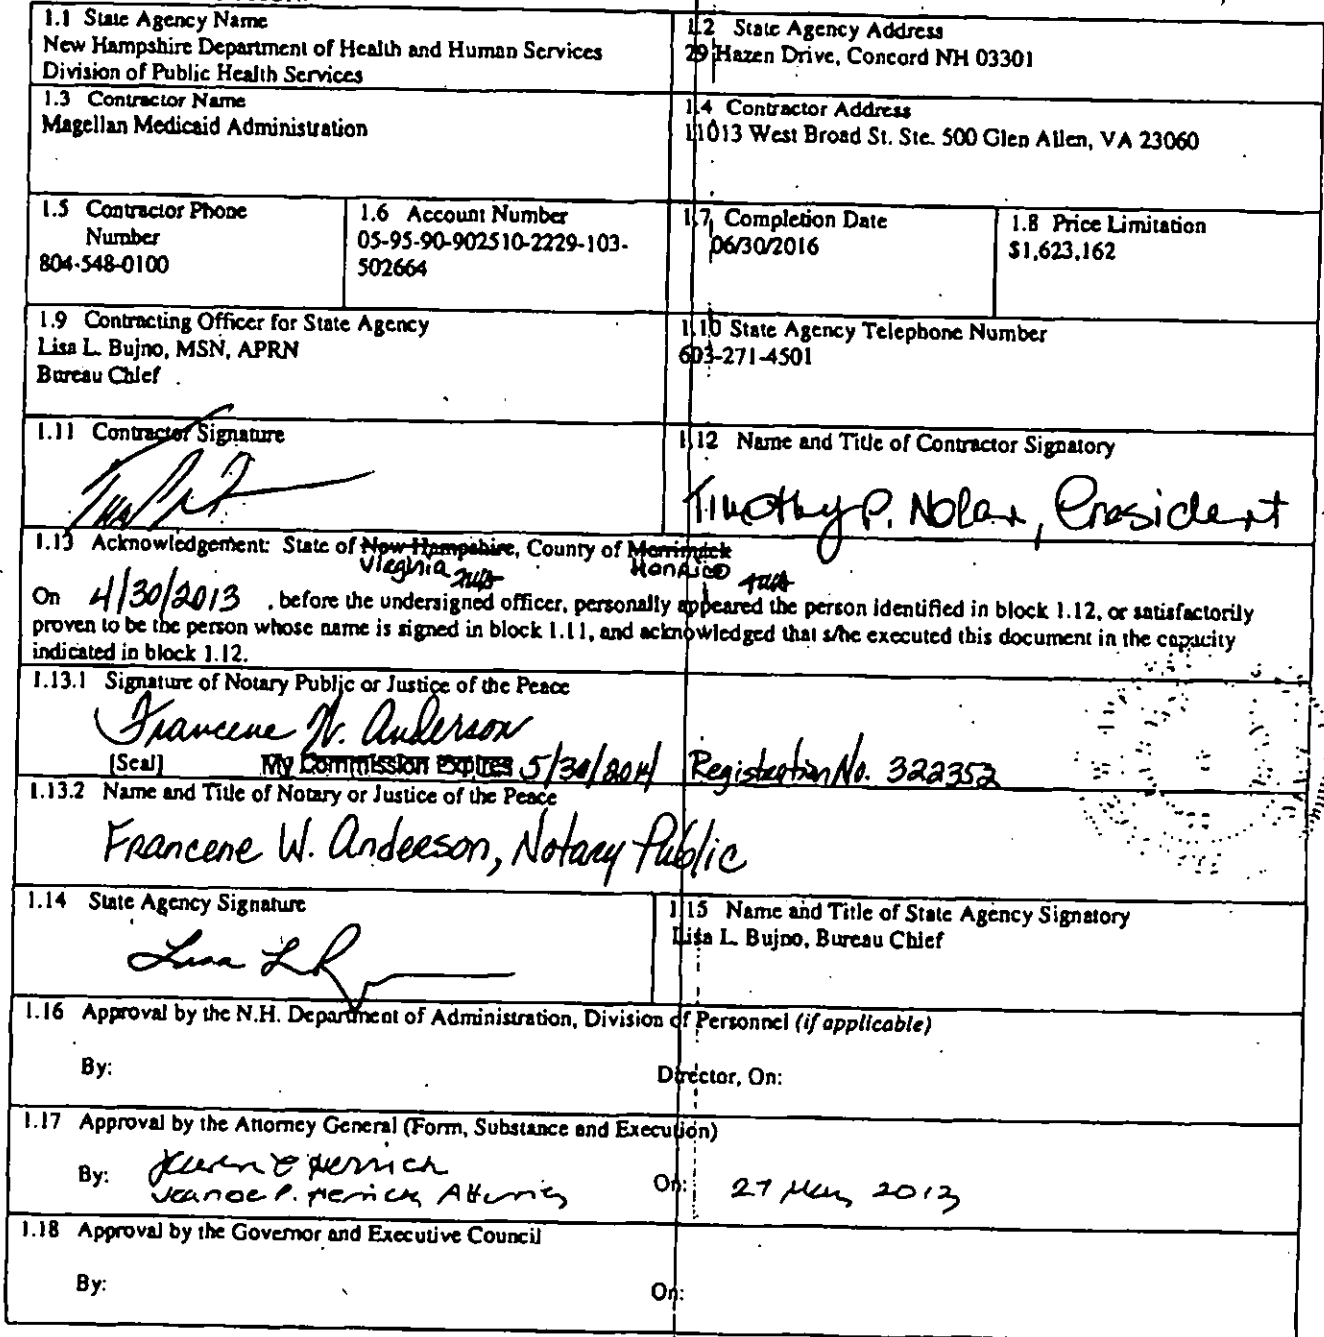 1.1 State Agency Name
New Hampshire Department of Health and Human Services
Division of Public Health Services
1.2 State Agency Address
29 Hazen Drive, Concord NH 03301
1.3 Contractor Name
Magellan Medicaid Administration
1.4 Contractor Address
11013 West Broad St. Ste. 500 Glen Allen, VA 23060
1.5 Contractor Phone
Number
804-548-0100
1.6 Account Number
05-95-90-902510-2229-103-
502664
1.7 Completion Date
06/30/2016
1.8 Price Limitation
$1,623,162
1.9 Contracting Officer for State Agency
Lisa L. Bujno, MSN, APRN
Bureau Chief
1.10 State Agency Telephone Number
603-271-4501
1.11 Contractor Signature
1.12 Name and Title of Contractor Signatory
Timothy P. Nolan, President
1.13 Acknowledgement: State of New Hampshire, County of Merrimack
Virginia Henrico
On 4/30/2013 , before the undersigned officer, personally appeared the person identified in block 1.12, or satisfactorily
proven to be the person whose name is signed in block 1.11, and acknowledged that s/he executed this document in the capacity
indicated in block 1.12.
1.13.1 Signature of Notary Public or Justice of the Peace
Francene W. Anderson
[Seal] My Commission Expires 5/30/2014 Registration No. 322352
1.13.2 Name and Title of Notary or Justice of the Peace
Francene W. Anderson, Notary Public
1.14 State Agency Signature
Lisa L
1.15 Name and Title of State Agency Signatory
Lisa L. Bujno, Bureau Chief
1.16 Approval by the N.H. Department of Administration, Division of Personnel (if applicable)
By: Director, On:
1.17 Approval by the Attorney General (Form, Substance and Execution)
By: Herrick
Jeanne P. Herrick Attorney On: 27 May 2013
1.18 Approval by the Governor and Executive Council
By: On: